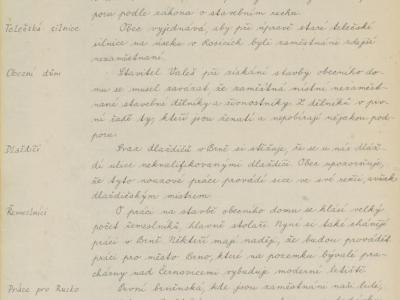 poru podle zákona o stavebním ruchu.
Telečská silnice
Obec vyjednává, aby při úpravě staré telečské
silnice na úseku v Kosicích byli zaměstnáni zdejší
nezaměstnaní.
Obecní dům
Stavitel Valeš při získání stavby obecního do-
mu se musel zavázat že zaměstná místní nezaměst-
nané stavební dělníky a živnostníky. Z dělníků v prv-
ní řadě ty, kteří jsou ženatí a nepobírají nějakou pod-
poru.
Dlaždiči
Svaz dlaždičů v Brně si stěžuje, že se u nás dláž-
dí ulice nekvalifikovanými dlaždiči. Obec upozorňuje,
že tyto nouzové práce provádí sice ve své režii, avšak
dlaždičským mistrem.
Řemeslníci
O práci na stavbě obecního domu se hlásí velký
počet řemeslníků, hlavně stolaři. Nyní si také shánějí
práci v Brně. Někteří mají naději, že budou provádět
práci pro město Brno, které na pozemku bývalé pra-
chárny nad Černovicemi vybuduje moderní letiště.
Práce pro Rusko
První brněnská, kde jsou zaměstnáni naši lidé,